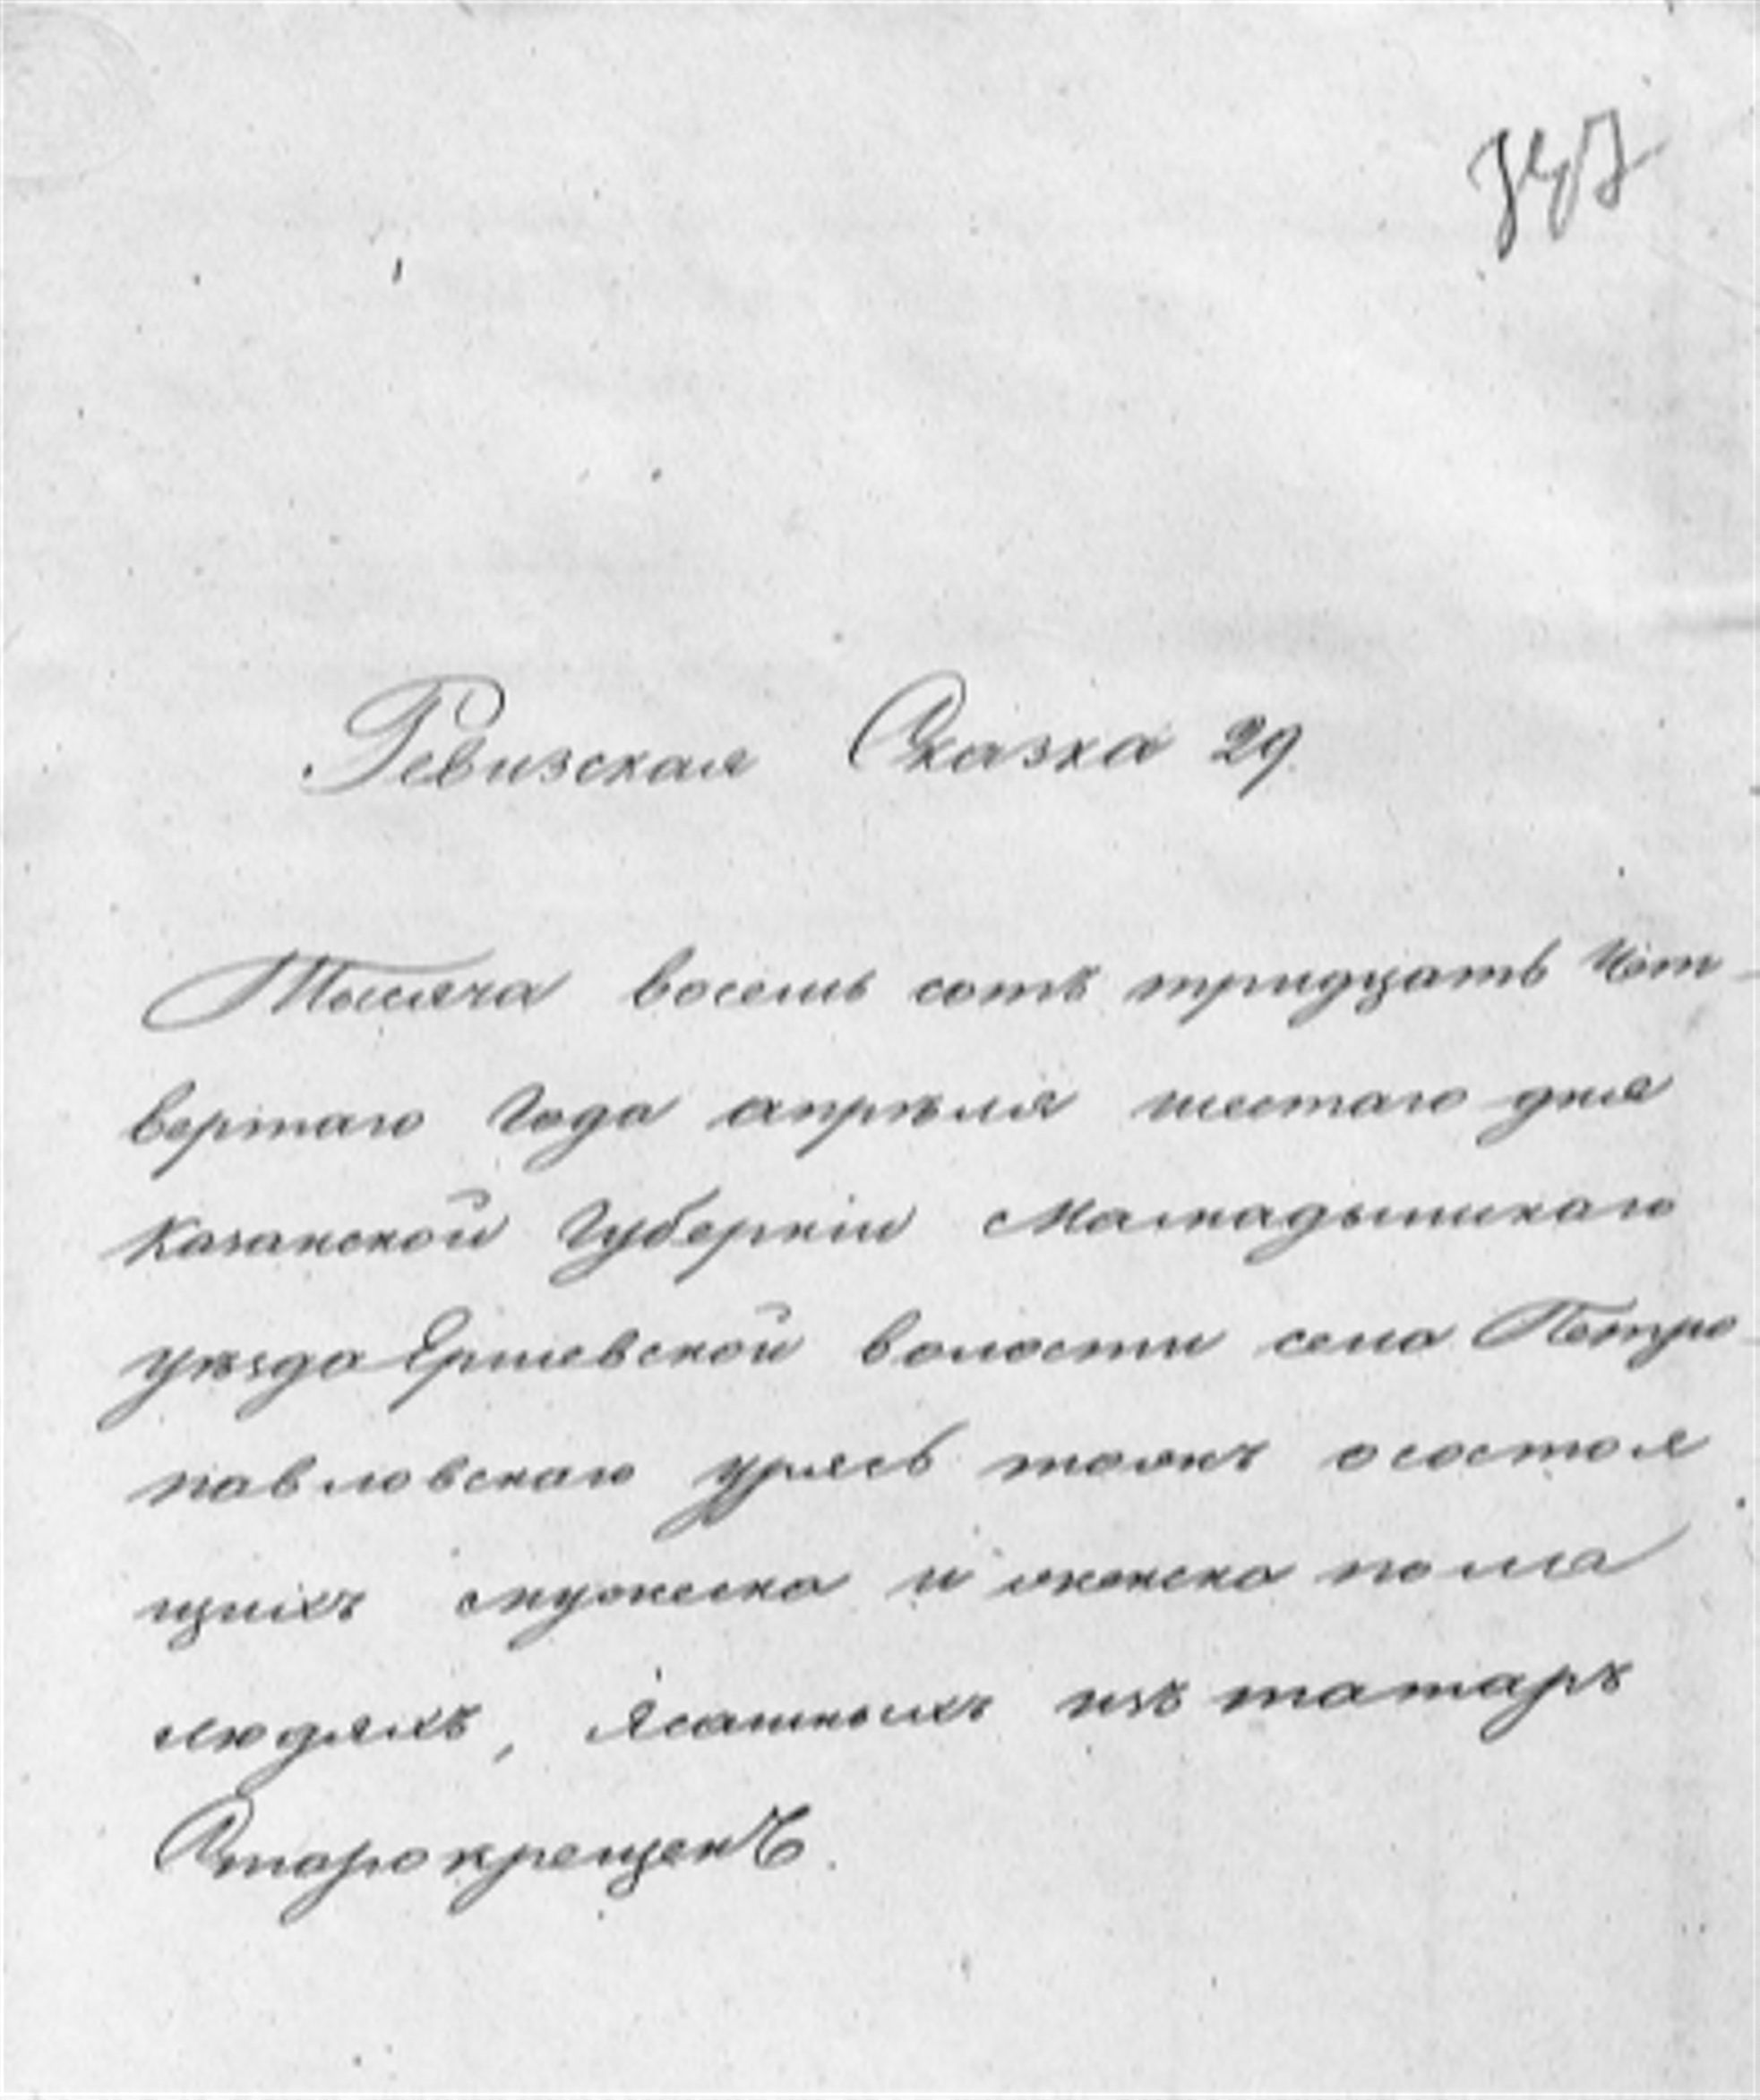 Ревизская Сказка 29
Тысяча восемь сотъ тридцать Чет-
вертаго Года апрѣля шестаго дня
Казанской Губерніи Мамадышскаго
уѣзда Ершевской волости села Петро-
павловскаго урясь тожъ осостоя
щихъ мужеска и женска пола
людяхъ, Ясашныхъ изъ татаръ
Старокрещенъ.